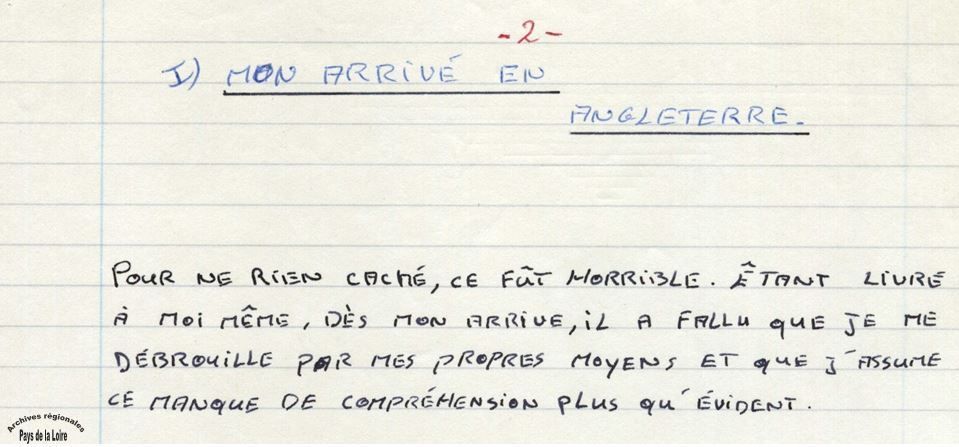 -2-
I) MON ARRIVÉ EN
ANGLETERRE.
POUR NE RIEN CACHÉ, CE FÛT HORRIBLE. ÊTANT LIVRÉ
À MOI MÊME, DÈS MON ARRIVE, iL A FALLU QUE JE ME
DÉBROUILLE PAR MES PROPRES MOYENS ET QUE J'ASSUME
CE MANQUE DE COMPRÉHENSION PLUS QU'ÉVIDENT.
Archives régionales
Pays de la Loire